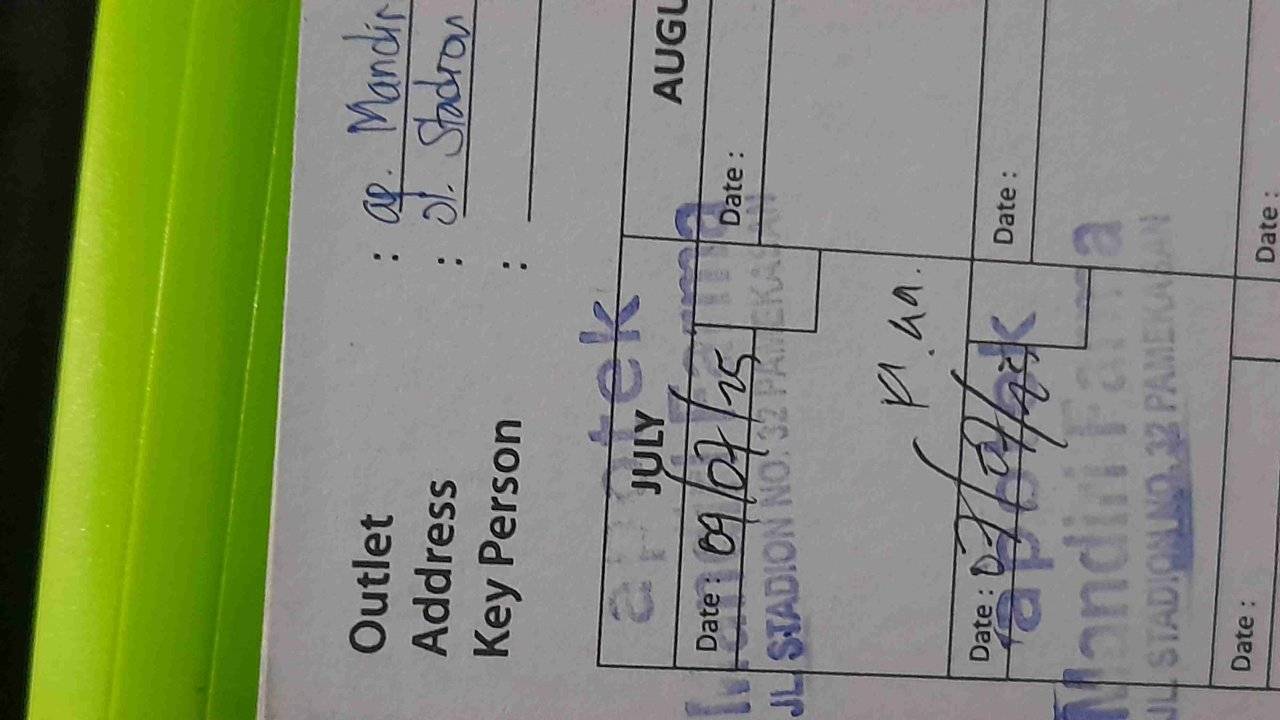 Outlet : ap. Mandir
Address : Jl. Stadion
Key Person :
JULY
AUGU
apotek
Mandiri Farma
JL. STADION NO. 32 PAMEKASAN
Date : 09/07/25
Date :
Date :
apotek
Mandiri Farma
JL. STADION NO. 32 PAMEKASAN
Date :
Date :
Date :